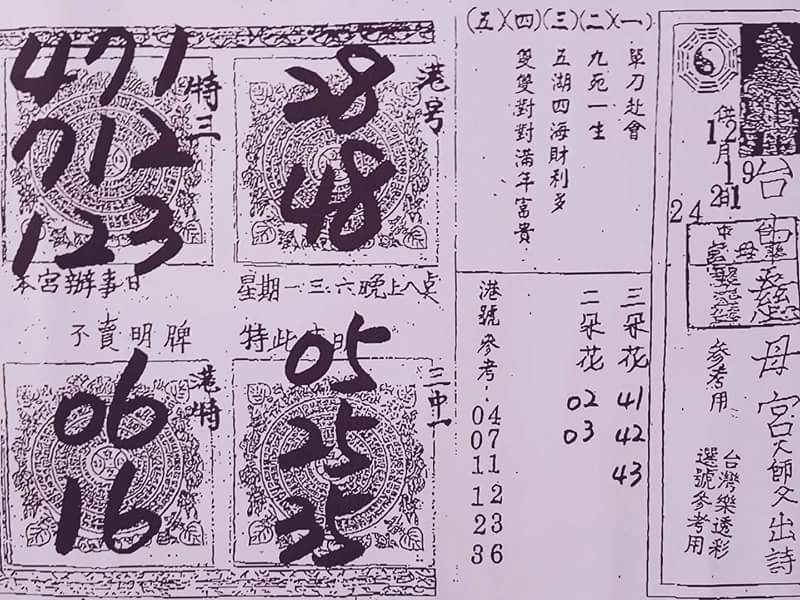 台
母
宮
天師父出詩
供
12
月
19
21
日
24
參考用
台灣樂透彩
選號參考用
(五)(四)(三)(二)(一)
單刀赴會
九死一生
五湖四海財利多
雙雙對對滿年富貴
三朵花
41
42
43
二朵花
02
03
港號參考
04
07
11
12
23
36
港号
28
48
特三
471
712
123
本宮辦事日
星期一三六晚上八点
不賣明牌
特此
三中一
05
25
35
港特
06
16